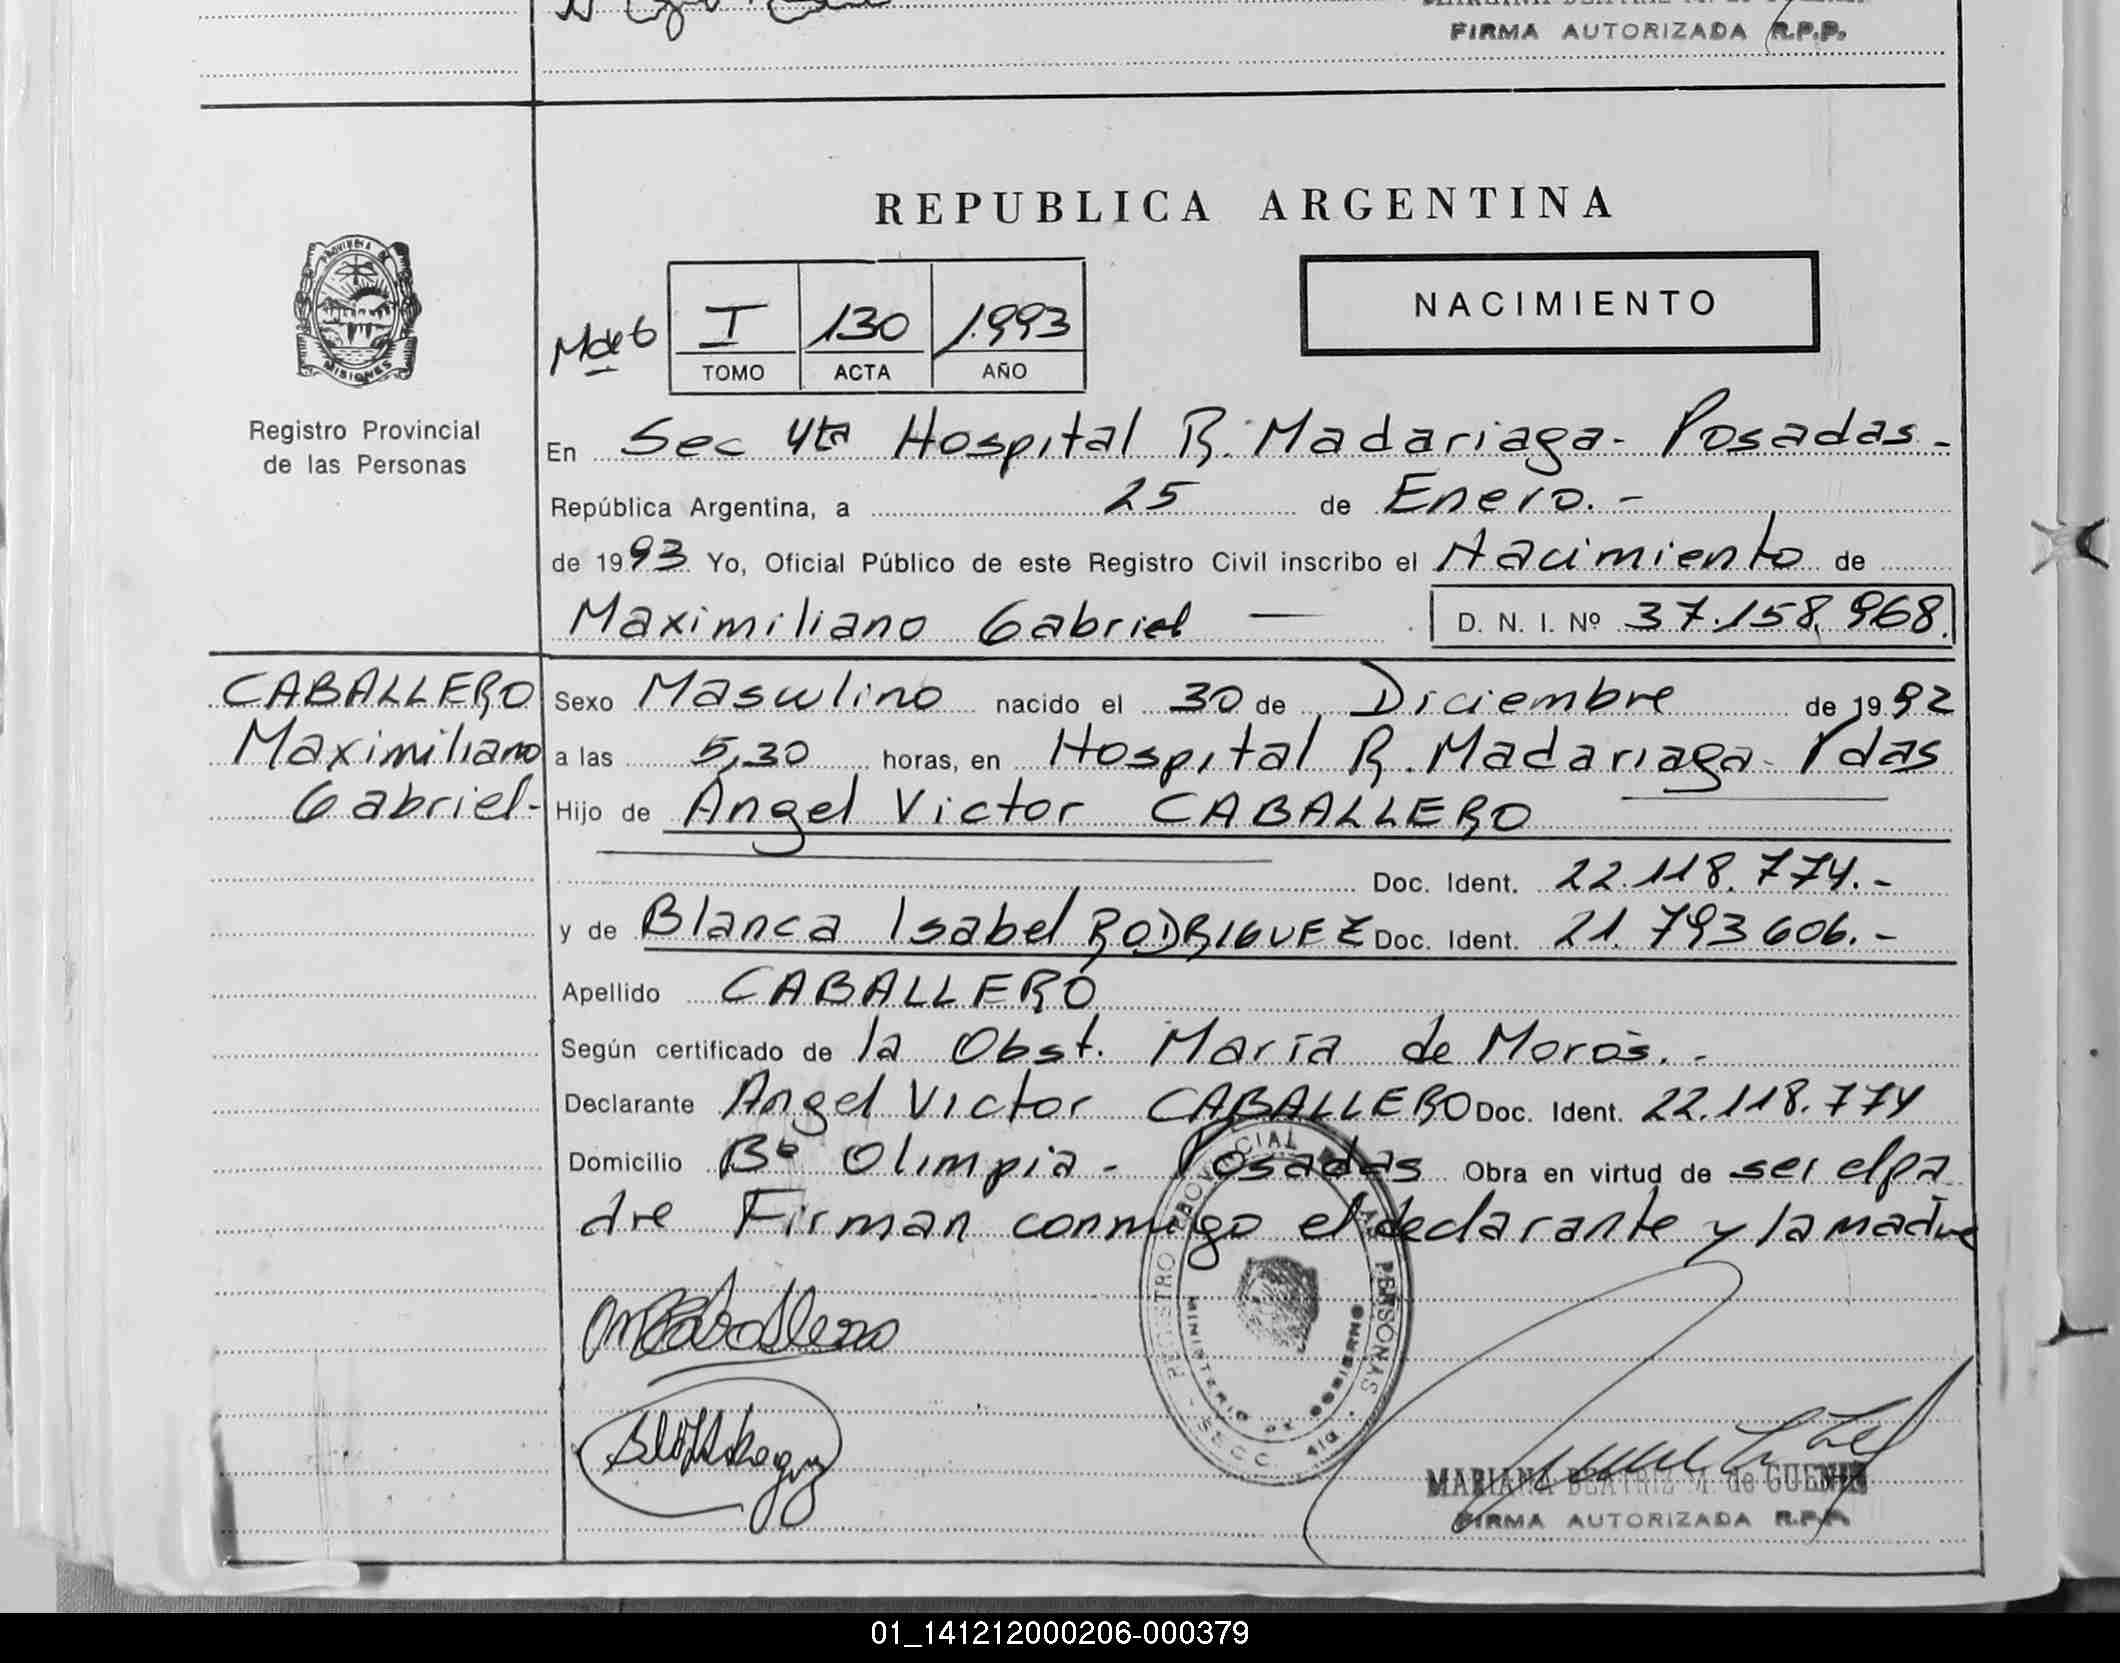 FIRMA AUTORIZADA R.P.P.
REPUBLICA ARGENTINA
PROVINCIA DE
MISIONES
Registro Provincial
de las Personas
I 130 1.993
TOMO ACTA AÑO
NACIMIENTO
En Sec 4ta Hospital R. Madariaga - Posadas -
República Argentina, a 25 de Enero. -
de 1993 Yo, Oficial Público de este Registro Civil inscribo el Nacimiento de
Maximiliano Gabriel — D. N. I. Nº 37.158.968.
CABALLERO
Maximiliano
Gabriel-
Sexo Masculino nacido el 30 de Diciembre de 1992
a las 5,30 horas, en Hospital R. Madariaga - Pdas
Hijo de Angel Victor CABALLERO
Doc. Ident. 22.118.774.-
y de Blanca Isabel RODRIGUEZ Doc. Ident. 21.793.606.-
Apellido CABALLERO
Según certificado de la Obst. María de Moros. -
Declarante Angel Victor CABALLERO Doc. Ident. 22.118.774
Domicilio Bº Olimpia - Posadas Obra en virtud de ser el pa
dre Firman conmigo el declarante y la madre
REGISTRO PROVINCIAL DE LAS PERSONAS
MINISTERIO DE GOBIERNO
SECC. 4ta.
MARIANA BEATRIZ M. de
FIRMA AUTORIZADA R.P.P.
01_141212000206-000379